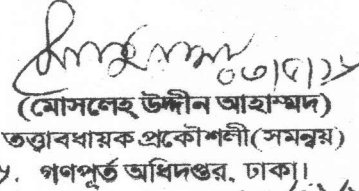 ০৩|৫|১৮
(মোসলেহ্ উদ্দীন আহাম্মদ)
তত্ত্বাবধায়ক প্রকৌশলী(সমন্বয়)
গণপূর্ত অধিদপ্তর, ঢাকা।